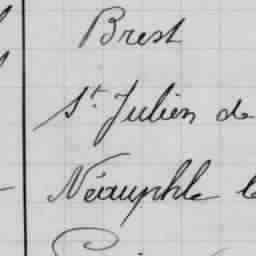 Brest
St. Julien de
Néauphle